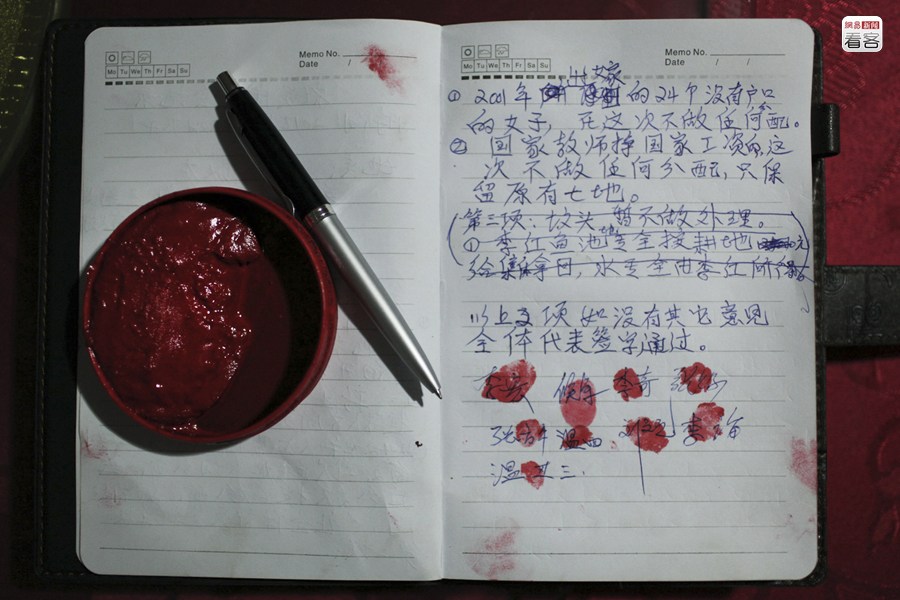 网易新闻
看客
Memo No.
Date / /
Mo Tu We Th Fr Sa Su
Memo No.
Date / /
Mo Tu We Th Fr Sa Su
出嫁
① 2001年 的24个没有户口
的女子，在这次不做任何分配。
② 国家教师挣国家工资的,这
次不做任何分配,只保
留原有土地。
第三项：坟头暂不做处理。
① 李红鱼池 全按耕地
给集体 ，水 全由李红
以上 项如没有其它意见
全体代表签字通过。
李奇
温四 李
温 三